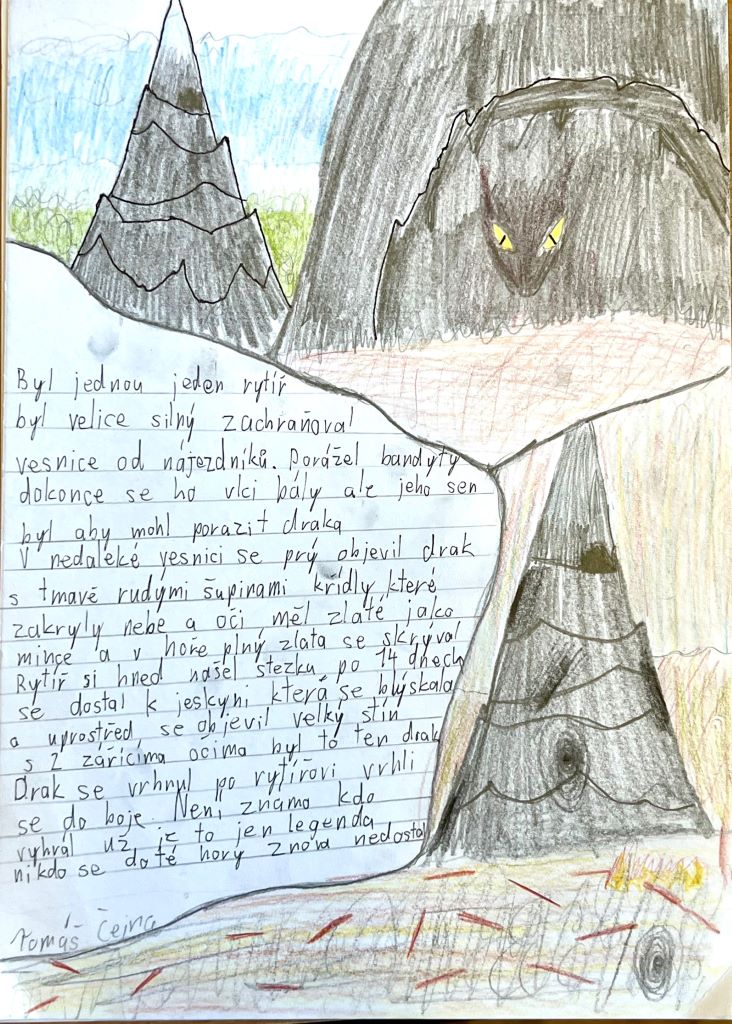 Byl jednou jeden rytíř
byl velice silný zachraňoval
vesnice od nájezdníků. Porážel bandyty
dokonce se ho vlci bály ale jeho sen
byl aby mohl porazit draka
V nedaleké vesnici se prý objevil drak
s tmavě rudými šupinami křídly, které
zakryly nebe a oči měl zlaté jako
mince a v hoře plný zlata se skrýval
Rytíř si hned našel stezku po 14 dnech
se dostal k jeskyni která se blýskala
a uprostřed se objevil velký stín
s 2 zářícíma očima byl to ten drak
Drak se vrhnul po rytířovi vrhli
se do boje. Není známo kdo
vyhrál už je to jen legenda
nikdo se do té hory znova nedostal
Tomáš Čejna